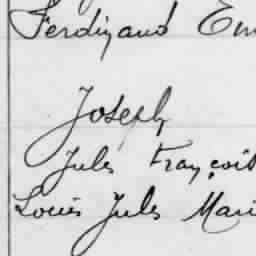 Ferdinand Em
Joseph
Jules François
Louis Jules Mari